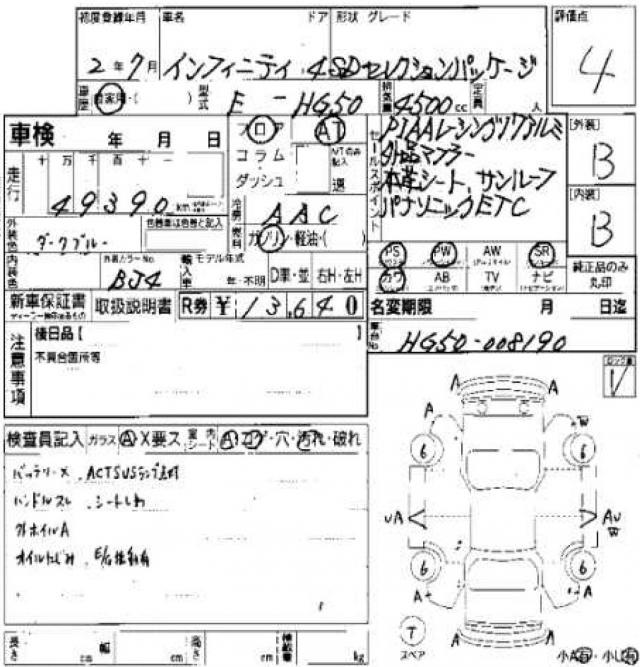 初度登録年月 車名 ドア 形状 グレード 評価点
2年7月 インフィニティ 4SD セレクションパッケージ 4
車歴 自家用・( ) 型式 E-HG50 排気量 4500cc 定員 人
車検 年 月 日 フロア AT
コラム A/Tのみ記入
ダッシュ 速
セールスポイント
PIAAレーシング17アルミ
外品マフラー
本革シート、サンルーフ
パナソニックETC
[外装]
B
[内装]
B
走行 十 万 千 百 十 一
49390 km
冷房 AAC
燃料 ガソリン・軽油・( )
外装色 ダークブルー 色替車は色替と記入
内装色 外装カラーNo. BJ4
輸入車 モデル年式 年・不明 D車・並 右H・左H
PS PW AW SR
カワ AB TV ナビ
純正品のみ丸印
新車保証書 取扱説明書 R券 ¥13,640
名変期限 月 日迄
車台No. HG50-008190
注意事項
後日品【 】
不具合箇所等
検査員記入 ガラス A X要ス 室内シート A・コゲ・穴・汚れ・破れ
バッテリーX ACTSUSランプ点灯
ハンドルスレ シートしわ
外ホイルA
オイルにじみ
A A
A W
6 6
UA AU
W
6 6
A A
A A
T
スペア
小A有・小U有
長さ cm 幅 cm 高さ cm 積載量 kg